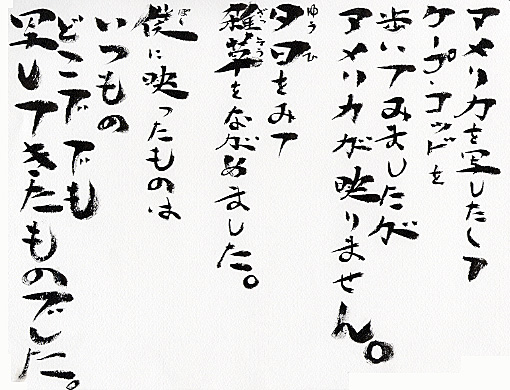 アメリカを写したくて
ケープ・コッドを
歩いてみましたが
アメリカが映りません。
夕日をみて
雑草をながめました。
僕に映ったものは
いつもの
どこででも
写してきたものでした。
ゆうひ
ざっそう
ぼく